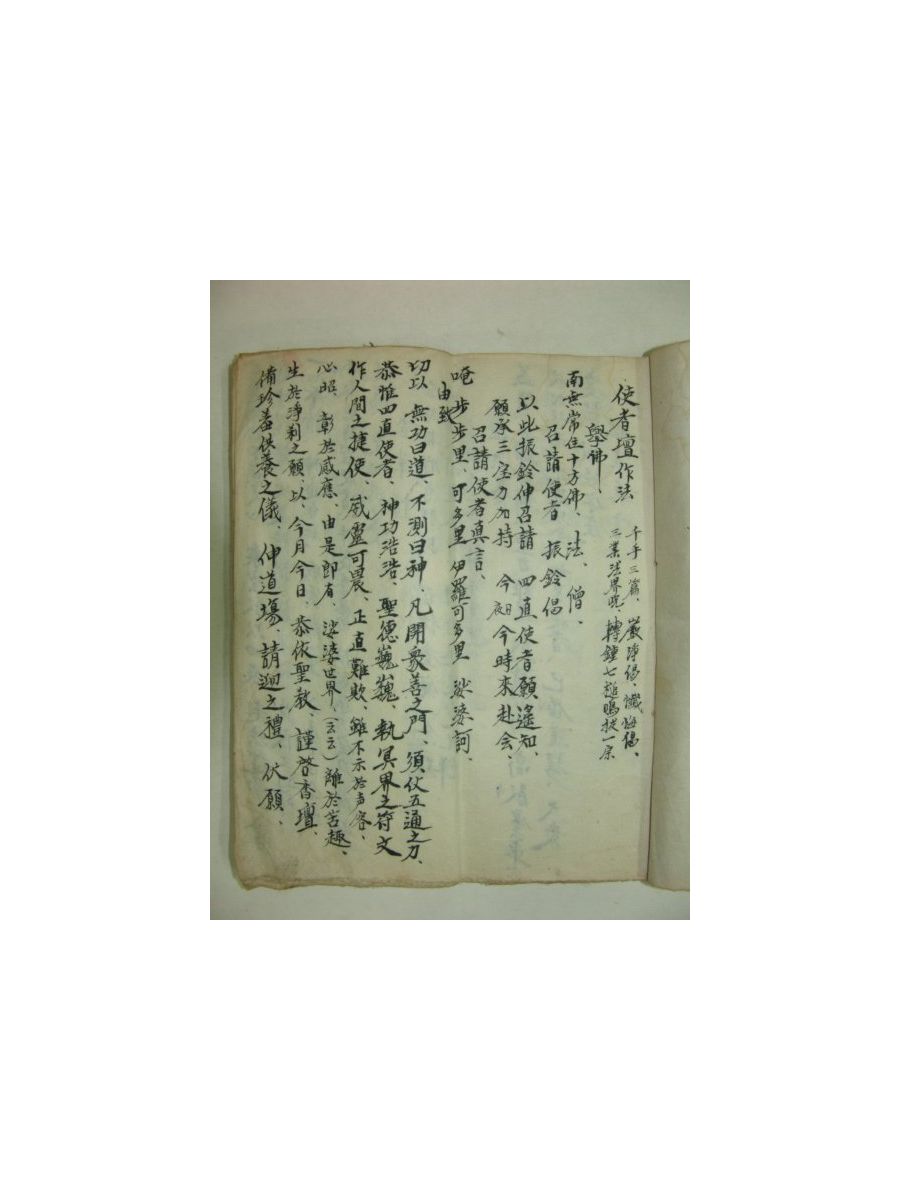 使者壇作法
千手三篇、嚴淨偈、懺悔偈、
三業法界呪、轉鍾七搥鳴鈸一宗
擧佛、
南無常住十方佛、法、僧、
召請使者 振鈴偈
以此振鈴伸召請 四直使者願遙知、
願承三宝力加持 今夜今日今時來赴会、
召請使者眞言、
唵 步步里、可多里 伊羅可多里 娑婆訶、
由致
切以 無功曰道、不測曰神、凡開衆善之門、須仗五通之力、
恭惟四直使者、神功浩浩、聖德巍巍、執冥界之符文
作人間之捷使、威靈可畏、正直難欺、雖不示於声容、
心昭、彰於感應、由是卽有、娑婆世界、(云云)離於苦趣、
生於淨刹之願、以、今月今日、恭依聖敎、謹啓香壇、
備珍羞供養之儀、仲道塲、請迴之禮、伏願、